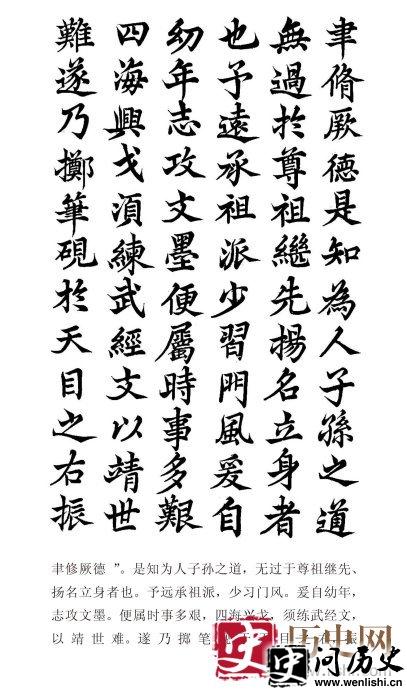 聿脩厥德是知為人子孫之道
無過於尊祖繼先揚名立身者
也予遠承祖派少習門風爰自
幼年志攻文墨便屬時事多艱
四海興戈須練武經文以靖世
難遂乃擲筆硯於天目之右振
聿修厥德 ”。是知为人子孙之道，无过于尊祖继先、
扬名立身者也。予远承祖派，少习门风。爰自幼年，
志攻文墨。便属时事多艰，四海兴戈，须练武经文，
以靖世难。遂乃掷笔
历史网
史 史 问历史
www.wenlishi.cn